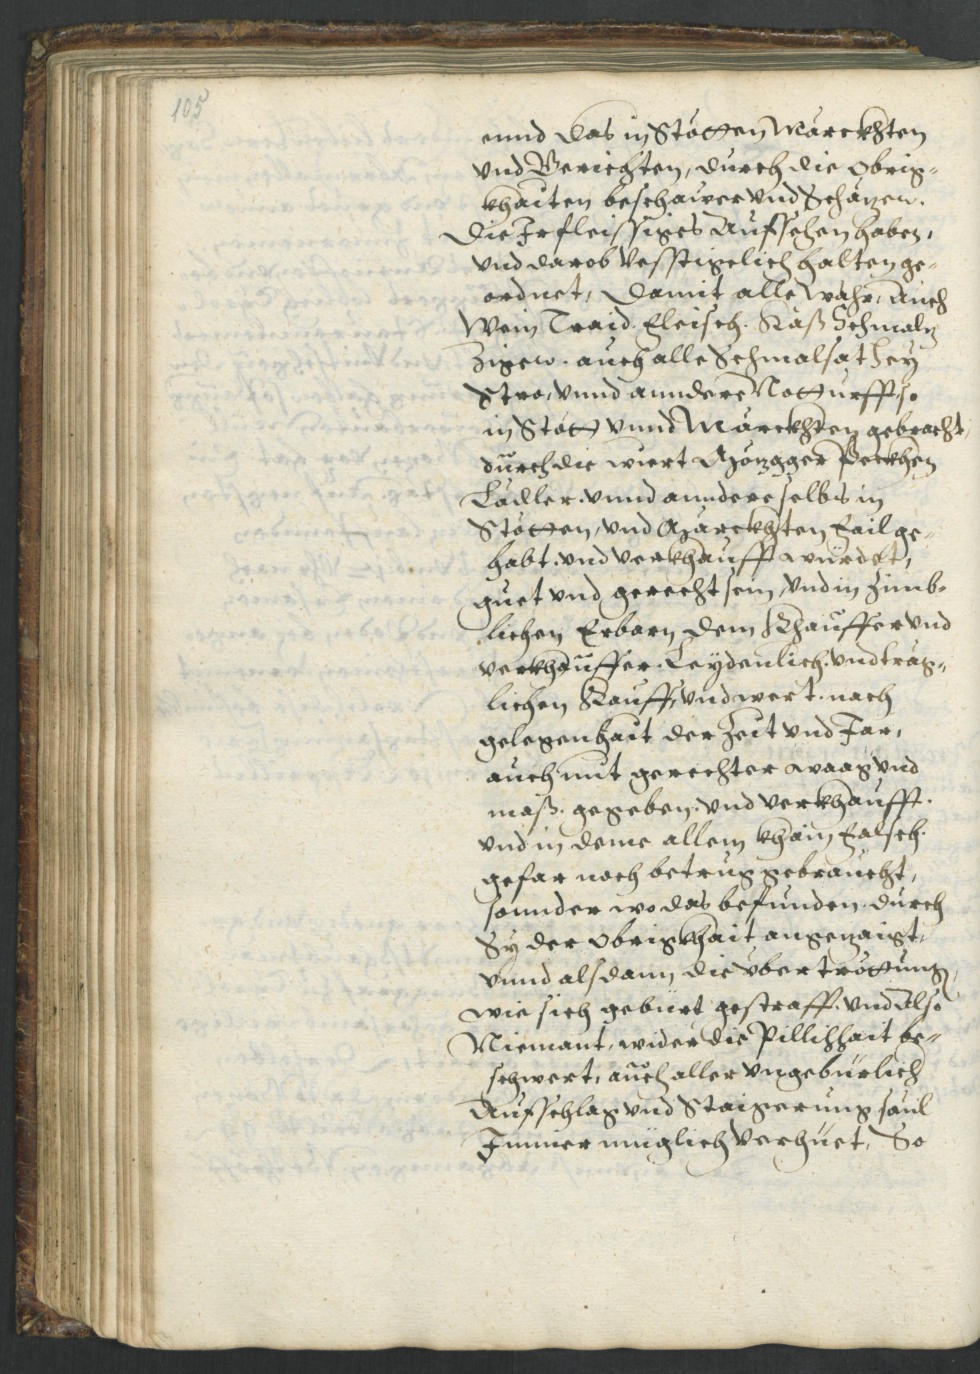 105
vnnd das in Stötten Märckhten
vnd Gerichten, durch die Obrig-
khaiten beschawer vnd Schäzer.
Die Ir fleissiges Aufsehen haben,
vnd darob vesstigelich halten ge-
ordnet, Damit alle wahr, auch
Wein Traid. Fleisch. Käß Schmalz
auch alle Schmalsat Hey
Stro, vnnd anndere Notturfft, so
in Stött vnnd Märckhten gebracht,
durch die wiert Mözgger Peckhen
vnnd anndere selbs in
Stötten, vnd Märckhten Fail ge-
habt. vnd verkhaufft würdet,
guet vnd gerecht sein, vnd in zimb-
lichen Erbarn, dem Khauffer vnd
verkhauffer. Leydenlich. vnd träg-
lichen Kauff, vnd wert. nach
gelegenhait der Zeit vnd Jar,
auch mit gerechter waag vnd
maß. gegeben. vnd verkhaufft.
vnd in deme allem khain Falsch.
gefar noch betrug gebraucht,
sonnder wo das befunden. durch
Sy der Obrigkhait angezaigt,
vnnd alsdann die übertröttung,
wie sich gebürt gestrafft. vnd Also
Niemant, wider die Pillichait be-
schwert, auch aller vngebürlich
Aufschlag vnd Staigerung sauil
Immer müglich verhüet, So